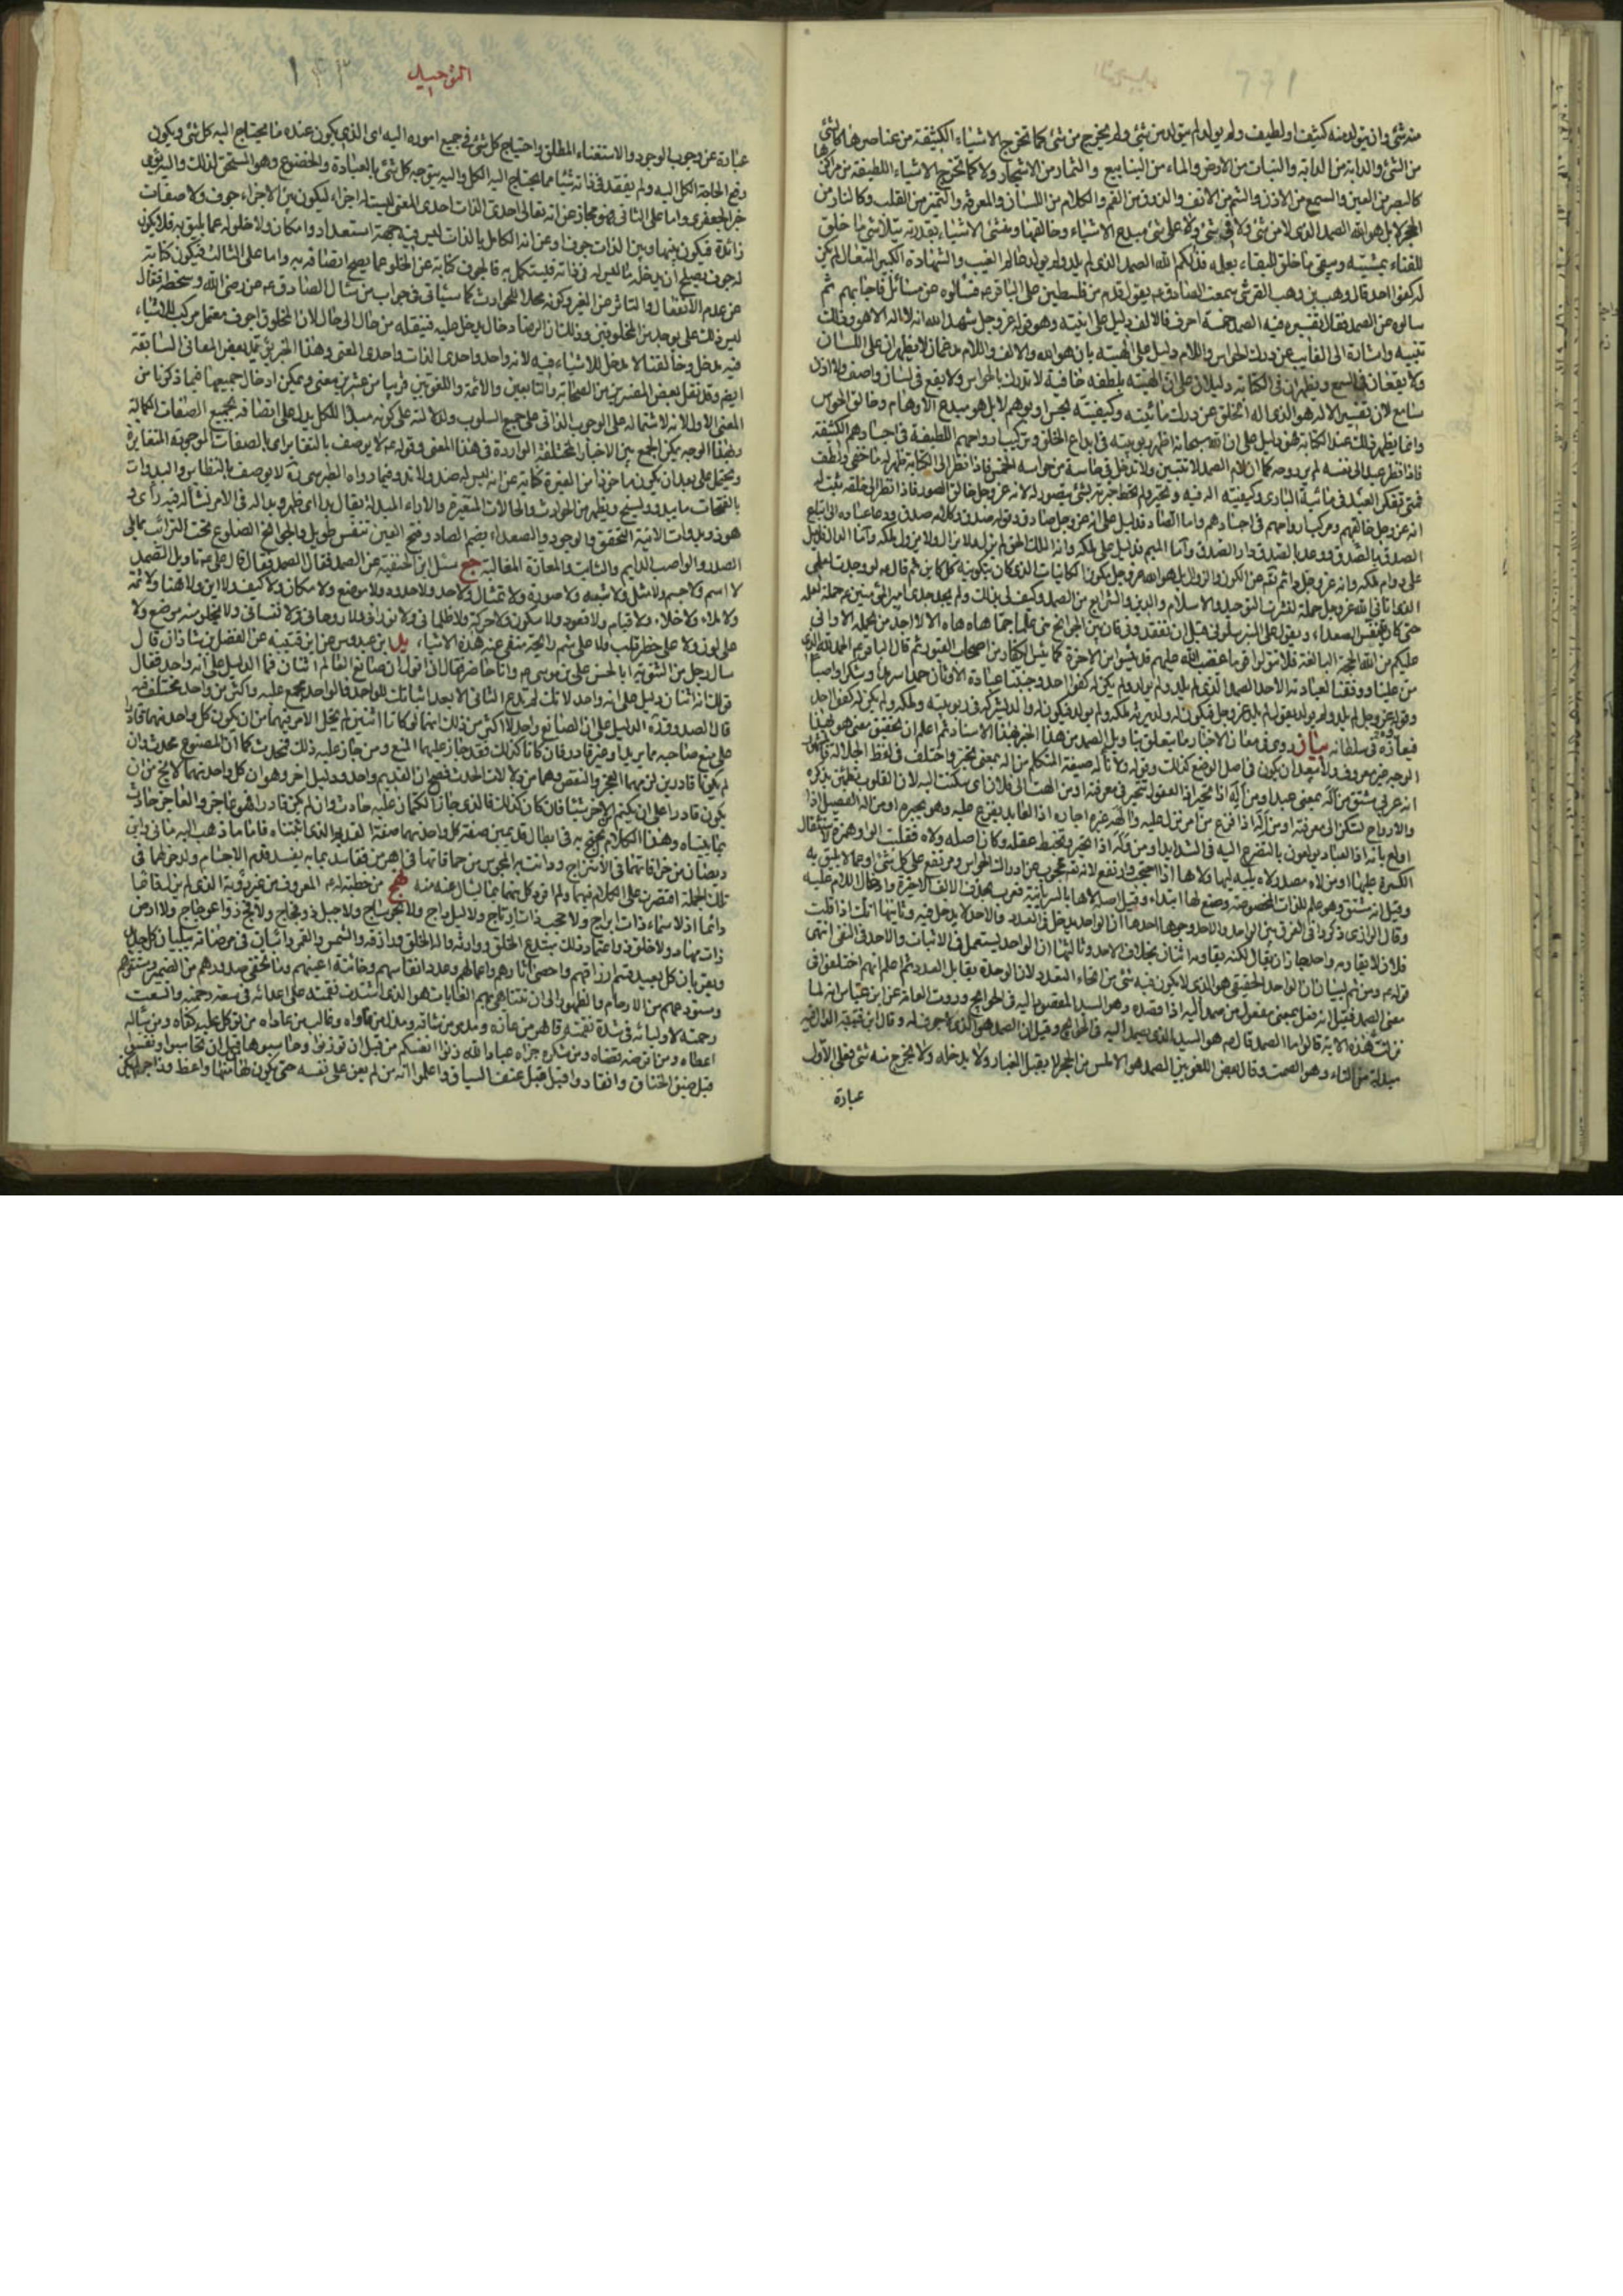 منه شئ وان يتولد منه كثيف او لطيف ولم يولد لم يتولد من شئ ولم يخرج من شئ كما تخرج الاشياء الكثيفة من عناصرها كالشئ
من الشئ والدابة من الدابة والنبات من الارض والماء من الينابيع والثمار من الاشجار ولا كما تخرج الاشياء اللطيفة من مراكزها
كالبصر من العين والسمع من الاذن والشم من الانف والذوق من الفم والكلام من اللسان والمعرفة والتميز من القلب وكالنار من
الحجر لا بل هو الله الصمد الذى لا من شئ ولا فى شئ ولا على شئ مبدع الاشياء وخالقها ومنشئ الاشياء بقدرته يتلاشى ما خلق
للفناء بمشيته ويبقى ما خلق للبقاء بعلمه فذلكم الله الصمد الذى لم يلد ولم يولد عالم الغيب والشهادة الكبير المتعال ولم يكن
له كفوا احد قال وهب بن وهب القرشى سمعت الصادق ع يقول قدم من فلسطين على الباقر ع فسألوه عن مسائل فاجابهم ثم
سالوه عن الصمد فقال تفسيره فيه الصمد خمسة احرف فالالف دليل على انيته وهو قوله عز وجل شهد الله انه لا اله الا هو وذلك
تنبيه واشارة الى الغائب عن درك الحواس واللام دليل على الهيته بانه هو الله والالف واللام مدغمان لا يظهران على اللسان
ولا يقعان فى السمع ويظهران فى الكتابة دليلان على ان الهيته بلطفه خافية لا تدرك بالحواس ولا يقع فى لسان واصف ولا اذن
سامع لان تفسير الاله هو الذى اله الخلق عن درك مائيته وكيفيته بحس او بوهم لا بل هو مبدع الاوهام وخالق الحواس
وانما يظهر ذلك عند الكتابة فهو دليل على ان الله سبحانه اظهر ربوبيته فى ابداع الخلق وتركيب ارواحهم اللطيفة فى اجسادهم الكثيفة
فاذا نظر عبد الى نفسه لم ير روحه كما ان لام الصمد لا تتبين ولا تدخل فى حاسة من حواسه الخمس فاذا نظر الى الكتابة ظهر له ما خفى ولطف
فمتى تفكر العبد فى مائية البارى وكيفيته اله فيه وتحير ولم تحط فكرته بشئ يتصور له لانه عز وجل خالق الصور فاذا نظر الى خلقه ثبت له
انه عز وجل خالقهم ومركب ارواحهم فى اجسادهم واما الصاد فدليل على انه عز وجل صادق وقوله صدق وكلامه صدق ودعا عباده الى اتباع
الصدق بالصدق ووعد بالصدق دار الصدق واما الميم فدليل على ملكه وانه الملك الحق لم يزل ولا يزال ولا يزول ملكه واما الدال فدليل
على دوام ملكه وانه عز وجل دائم تعالى عن الكون والزوال بل هو الله عز وجل مكون الكائنات الذى كان بتكوينه كل كائن ثم قال ع لو وجدت لعلمى
الذى آتانى الله عز وجل حملة لنشرت التوحيد والاسلام والدين والشرايع من الصمد وكيف لى بذلك ولم يجد جدى امير المؤمنين ع حملة لعلمه
حتى كان يتنفس الصعداء ويقول على المنبر سلونى قبل ان تفقدونى فان بين الجوانح منى علما جما هاه هاه الا لا اجد من يحمله الا وانى
عليكم من الله الحجة البالغة فلا تتولوا قوما غضب الله عليهم قد يئسوا من الاخرة كما يئس الكفار من اصحاب القبور ثم قال الباقر ع الحمد لله الذى
من علينا ووفقنا لعبادته الاحد الصمد الذى لم يلد ولم يولد ولم يكن له كفوا احد وجنبنا عبادة الاوثان حمدا سرمدا وشكرا واصبا
وقوله عز وجل لم يلد ولم يولد يقول لم يلد عز وجل فيكون له ولد يرثه ملكه ولم يولد فيكون له والد يشركه فى ربوبيته وملكه ولم يكن له كفوا احد
فيعازه فى سلطانه بيان روى فى معانى الاخبار ما يتعلق بتأويل الصمد من هذا الخبر بهذا الاسناد ثم اعلم ان تحقيق معنى هو بهذا
الوجه غير معروف ولا يبعد ان يكون فى اصل الوضع كذلك وقوله ولانا له صيغة المتكلم من اله بمعنى تحير واختلف فى لفظ الجلالة فالمشهور
انه عربى مشتق من اله بمعنى عبد او من اله اذا تحير اذ العقول تتحير فى معرفته او من الهت الى فلان اى سكنت اليه لان القلوب تطمئن بذكره
والارواح تسكن الى معرفته او من اله اذا فزع من امر نزل عليه وآلهه غيره اجاره اذ العابد يفزع اليه وهو يجيره او من اله الفصيل اذا
اولع بامه اذ العباد مولعون بالتضرع اليه فى الشدايد او من وله اذا تحير وتخبط عقله وكان اصله ولاه فقلبت الواو همزة لاستثقال
الكسرة عليها او من لاه مصدر لاه يليه ليها ولاها اذا احتجب وارتفع لانه تعالى محجوب عن ادراك الحواس ومرتفع على كل شئ وعما لا يليق به
وقيل انه غير مشتق وهو علم للذات المخصوصة وضع لها ابتداء وقيل اصله لاها بالسريانية فعرب بحذف الالف الاخيرة وادخال اللام عليه
وقال الرازى ذكروا فى الفرق بين الواحد والاحد وجوها احدها ان الواحد يدخل فى العدد والاحد لا يدخل فيه وثانيها انك اذا قلت
فلان لا يقاومه واحد جاز ان يقال لكنه يقاومه اثنان بخلاف الاحد وثالثها ان الواحد يستعمل فى الاثبات والاحد فى النفى انتهى
قوله ع ومن ثم لبيان ان الواحد الحقيقى هو الذى لا يكون فيه شئ من انحاء التعدد لان الوحدة يقابل العدد ثم اعلم انهم اختلفوا فى
معنى الصمد فقيل انه فعل بمعنى مفعول من صمد اليه اذا قصده وهو السيد المقصود اليه فى الحوائج وروت العامة عن ابن عباس انه لما
نزلت هذه الاية قالوا ما الصمد قال ص هو السيد الذى يصمد اليه فى الحوائج وقيل ان الصمد هو الذى لا جوف له وقال ابن قتيبة الدال فيه
مبدلة من التاء وهو الصمت وقال بعض اللغويين الصمد هو الاملس من الحجر لا يقبل الغبار ولا يدخله ولا يخرج منه شئ فعلى الاول
عبارة
التوحيد
١٣٣
عبارة عن وجوب الوجود والاستغناء المطلق واحتياج كل شئ فى جميع اموره اليه اى الذى يكون عنده ما يحتاج اليه كل شئ ويكون
رفع الحاجة الكل اليه ولم يفقد فى ذاته شيئا مما يحتاج اليه الكل واليه يتوجه كل شئ بالعبادة والخضوع وهو المستحق لذلك واليه يؤمى
خبر الجعفرى واما على الثانى فهو مجاز عن انه تعالى احدى الذات احدى المعنى ليست له اجزاء ليكون بين الاجزاء جوف ولا صفات
زائدة فيكون بينها وبين الذات جوف او عن انه الكامل بالذات ليس فيه جهة استعداد وامكان ولا خلو له عما يليق به فلا يكون
له جوف يصلح ان يدخله ما ليس له فى ذاته فيستكمل به فالجوف كناية عن الخلو عما يصح اتصافه به واما على الثالث فيكون كناية
عن عدم الانفعال والتاثر عن الغير وكونه محلا للحوادث كما سيأتى فى جواب من سأل الصادق ع عن رضى الله وسخطه فقال
ليس ذلك على ما يوجد من المخلوقين وذلك ان الرضا دخال يدخل عليه فينقله من حال الى حال لان المخلوق اجوف معتمل مركب للاشياء
فيه مدخل وخالقنا لا مدخل للاشياء فيه لانه واحد واحدى الذات واحدى المعنى وهذا الخبر يؤيد بعض المعانى السابقة
ايضا وقد نقل بعض المفسرين عن الصحابة والتابعين والائمة واللغويين قريبا من عشرين معنى ويمكن ادخال جميعها فيما ذكرنا من
المعنى الاول لانه لاشتماله على الوجوب الذاتى يدل على جميع السلوب ولدلالته على كونه مبدأ للكل يدل على اتصافه بجميع الصفات الكمالية
وبهذا الوجه يمكن الجمع بين الاخبار المختلفة الواردة فى هذا المعنى وقوله ع لا يوصف بالتغاير اى بالصفات الموجودة المتغايرة
ويحتمل على بعد ان يكون ماخوذا من الغيرة كناية عن انه ليس له ضد ولا ند وفيما رواه الطبرسى ره لا يوصف بالنظائر والبدوات
بالفتحات ما يبدو ويسنح ويظهر من الحوادث والحالات المتغيرة والاراء المتبدلة يقال بدا اى ظهر وبدا له فى الامر نشأ له فيه رأى و
هو ذو بدوات الانية التحقق والوجود والصعداء بضم الصاد وفتح العين تنفس طويل والجوانح الضلوع تحت الترائب مما يلى
الصدر والواصب الدايم والثابت والمعازة المغالبة جع سئل ابن الحنفية عن الصمد فقال قال على ع تأويل الصمد
لا اسم ولا جسم ولا مثل ولا شبه ولا صورة ولا تمثال ولا حد ولا حدود ولا موضع ولا مكان ولا كيف ولا اين ولا هنا ولا ثمة
ولا ملاء ولا خلاء ولا قيام ولا قعود ولا سكون ولا حركة ولا ظلمانى ولا نورانى ولا روحانى ولا نفسانى ولا يخلو منه موضع ولا
على لون ولا على خطر قلب ولا على شم رايحة منفى عنه هذه الاشياء يد ابن عبدوس عن ابن قتيبة عن الفضل بن شاذان قال
سال رجل من الثنوية ابا الحسن على بن موسى ع وانا حاضر فقال انى اقول ان صانع العالم اثنان فما الدليل على انه واحد فقال
قولك انه اثنان دليل على انه واحد لانك لم تدع الثانى الا بعد اثباتك الواحد فالواحد مجمع عليه واكثر من واحد مختلف فيه
قال الصدوق ره الدليل على ان الصانع واحد لا اكثر من ذلك انهما لو كانا اثنين لم يخل الامر فيهما من ان يكون كل واحد منهما قادرا
على منع صاحبه مما يريد او غير قادر فان كانا كذلك فقد جاز عليهما المنع ومن جاز عليه ذلك فمحدث كما ان المصنوع محدث وان
لم يكونا قادرين لزمهما العجز والنقص وهما من دلالات الحدث فصح ان القديم واحد ودليل اخر وهو ان كل واحد منهما لا يخ من ان
يكون قادرا على ان يكتم الاخر شيئا فان كان كذلك فالذى جاز الكتمان عليه حادث وان لم يكن قادرا فهو عاجز والعاجز حادث
بما بيناه وهذا الكلام يحتج به فى ابطال قديمين صفة كل واحد منهما صفة القديم الذى اثبتناه فاما ما ذهب اليه مانى وابن
ديصان من خرافاتهما فى الامتزاج ودانت به المجوس من حماقاتها فى اهرمن ففاسد بما به يفسد قدم الاجسام ولدخولهما فى
تلك الجملة اقتصرت على الكلام فيهما ولم افرد كلا منهما بما يسأل عنه منه نهج من خطبة له ع المعروف من غير رؤية الذى لم يزل قائما
دائما اذ لا سماء ذات ابراج ولا حجب ذات ارتاج ولا ليل داج ولا بحر ساج ولا جبل ذو فجاج ولا فج ذو اعوجاج ولا ارض
ذات مهاد ولا خلق ذو اعتماد ذلك مبتدع الخلق ووارثه واله الخلق ورازقه والشمس والقمر دائبان فى مرضاته يبليان كل جديد
ويقربان كل بعيد قسم ارزاقهم واحصى اثارهم واعمالهم وعدد انفاسهم وخائنة اعينهم وما تخفى صدورهم من الضمير ومستقرهم
ومستودعهم من الارحام والظهور الى ان تتناهى بهم الغايات هو الذى اشتدت نقمته على اعدائه فى سعة رحمته واتسعت
رحمته لاوليائه فى شدة نقمته قاهر من عازه ومدمر من شاقه ومذل من ناواه وغالب من عاداه من توكل عليه كفاه ومن سأله
اعطاه ومن اقرضه قضاه ومن شكره جزاه عباد الله زنوا انفسكم من قبل ان توزنوا وحاسبوها قبل ان تحاسبوا وتنفسوا
قبل ضيق الخناق وانقادوا قبل عنف السياق واعلموا انه من لم يعن على نفسه حتى يكون له منها واعظ وزاجر لم يكن